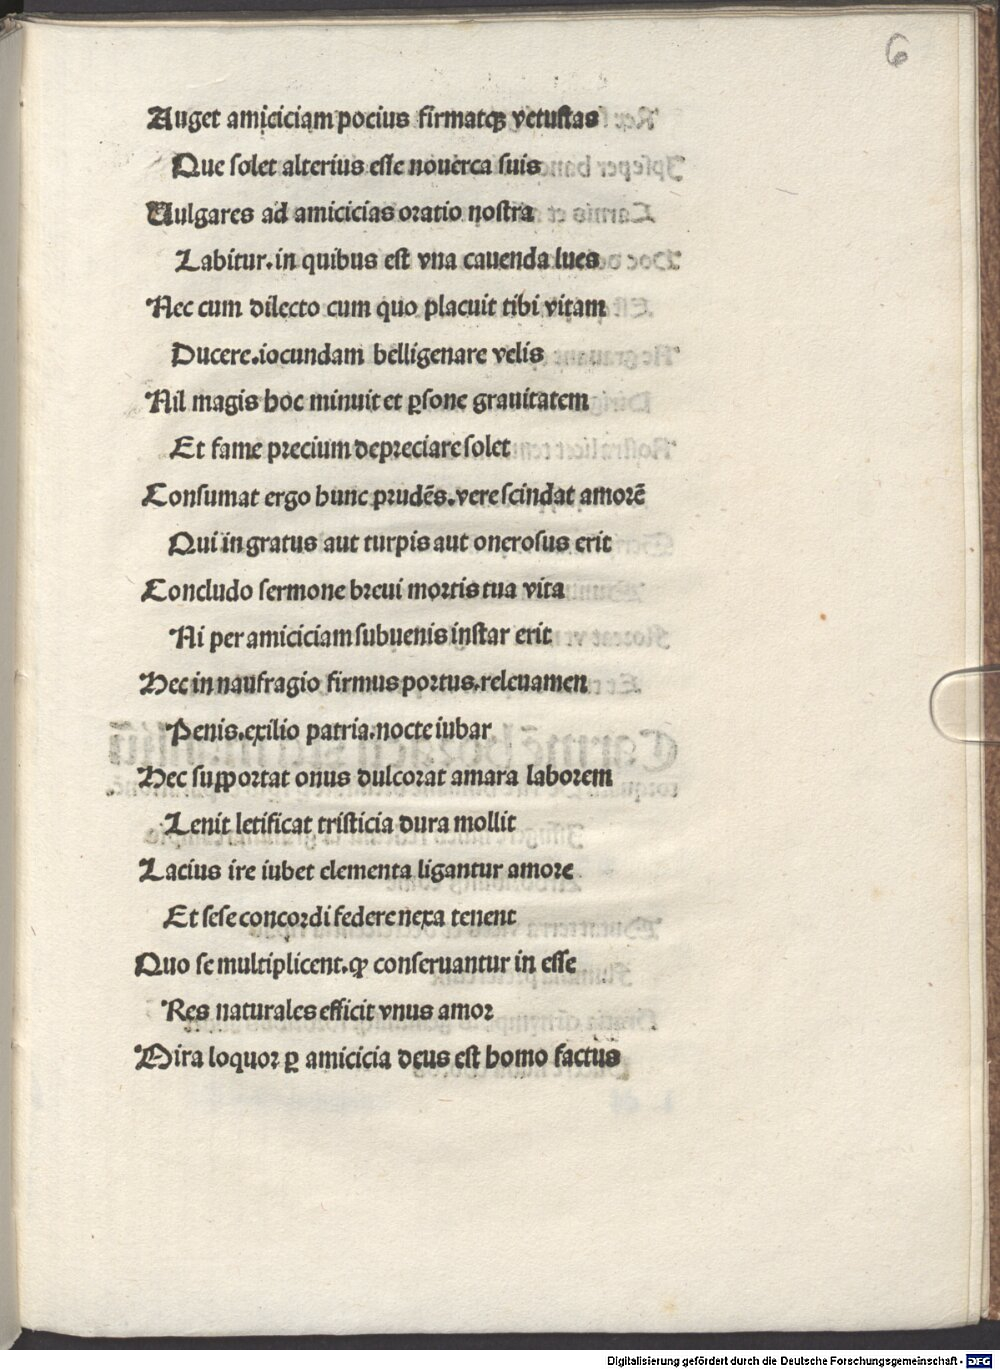 6
Auget amiciciam pocius firmatqꝫ vetuſtas
Que ſolet alterius eſſe nouerca ſuis
Uulgares ad amicicias oratio noſtra
Labitur.in quibus eſt vna cauenda lues
Nec cum dilecto cum quo placuit tibi vitam
Ducere.iocundam belligenare velis
Nil magis hoc minuit et ꝑſone grauitatem
Et fame precium depreciare ſolet
Conſumat ergo hunc prudēs.vere ſcindat amorē
Qui ingratus aut turpis aut oneroſus erit
Concludo ſermone breui mortis tua vita
Ni per amiciciam ſubuenis inſtar erit
Hec in naufragio firmus portus.releuamen
Penis.exilio patria.nocte iubar
Hec ſupportat onus dulcorat amara laborem
Lenit letificat triſticia dura mollit
Lacius ire iubet elementa ligantur amore
Et ſeſe concordi federe nexa tenent
Quo ſe multiplicent.qꝫ conſeruantur in eſſe
Res naturales efficit vnus amor
Mira loquor ꝑ amicicia deus eſt homo factus
Digitalisierung gefördert durch die Deutsche Forschungsgemeinschaft - DFG